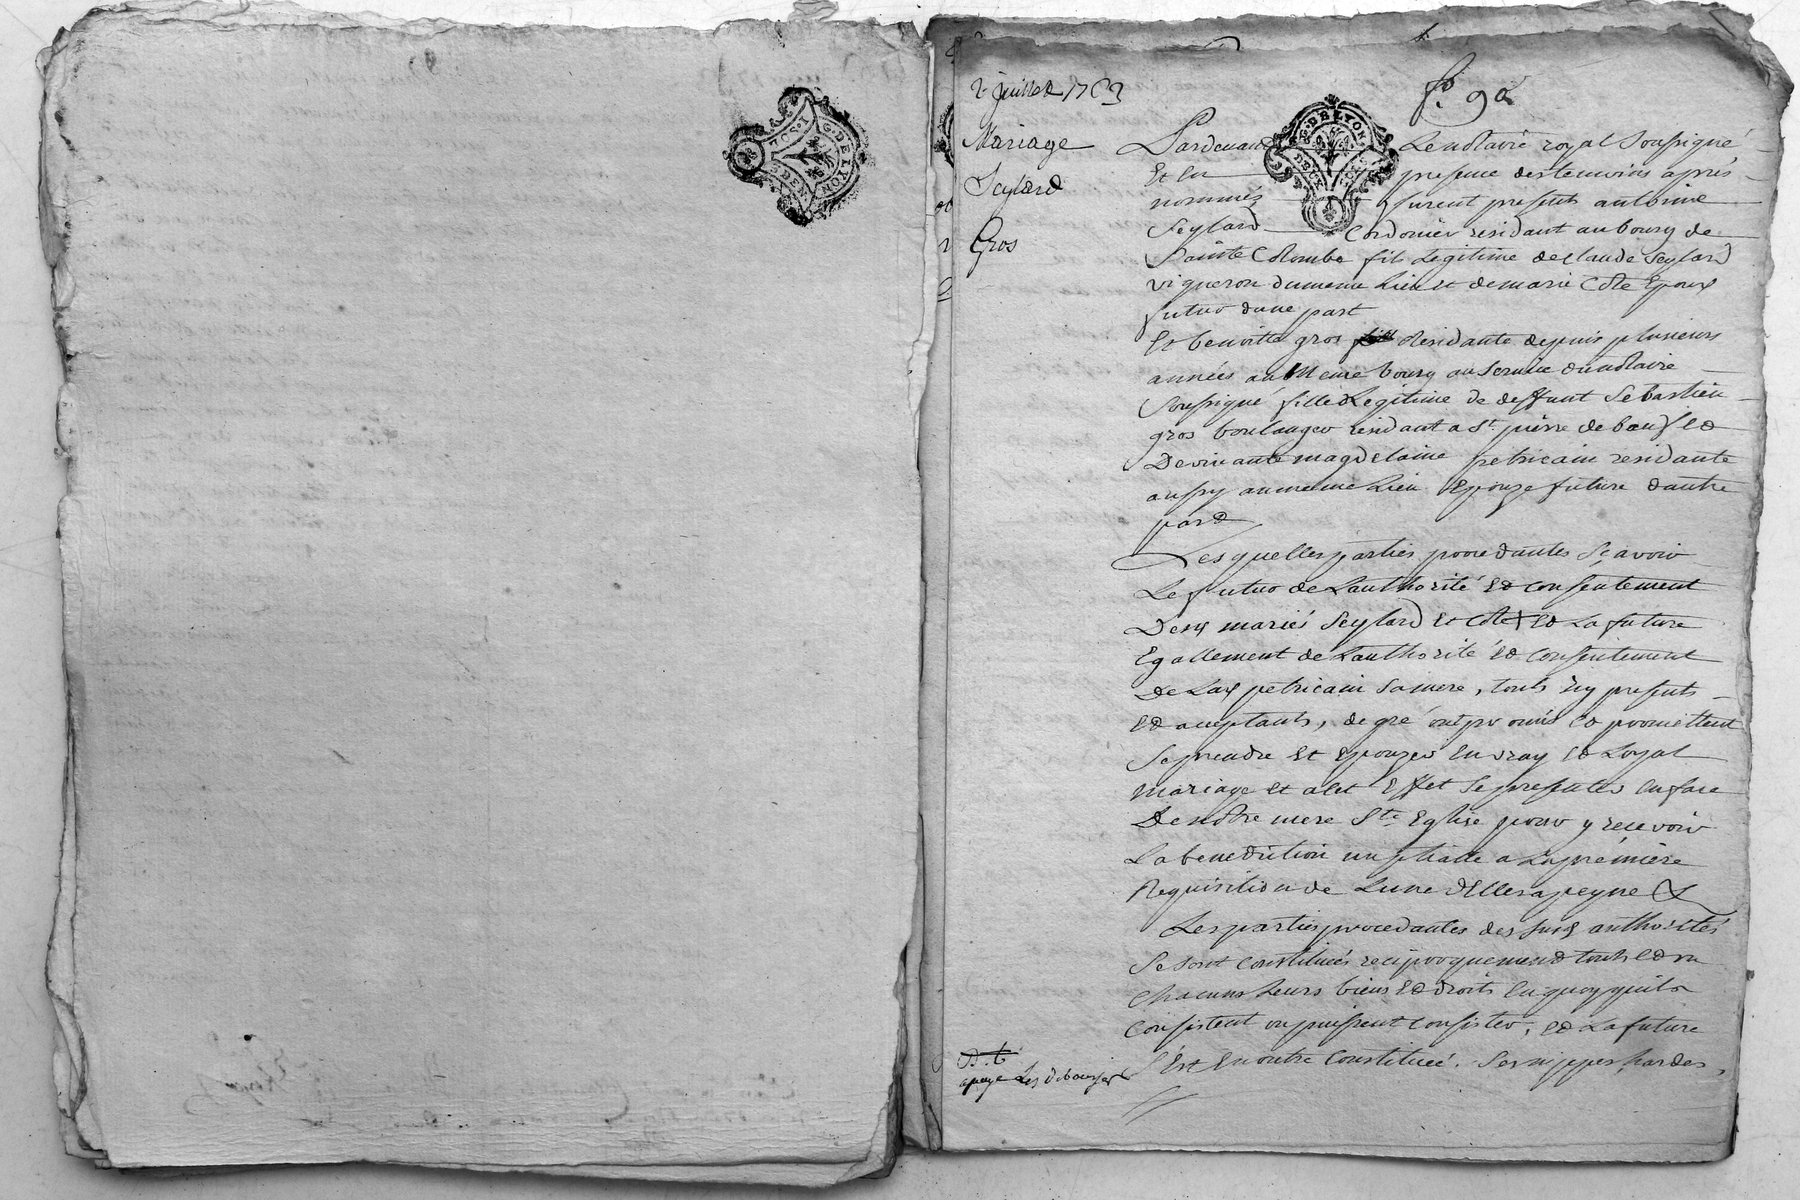 G. DE LYON
1. SOL
2 juillet 1763
fo. 92
Mariage
Seytard
Gros
G. DE LYON
DEUX
Pardevant Le notaire royal soussigné
Et en presence des temoins après
nommés furent presents antoine
Seytard Cordonier residant au bourg de
Sainte Colombe fils Legitime de Claude Seytard
vigneron du meme Lieu et de marie Côte Epoux
futur d'une part
Et benoitte gros residante depuis plusieurs
années au meme bourg au service du notaire
soussigné fille Legitime de deffunt Sebastien
gros boulanger residant a St pierre de boeuf et
De vivante magdelaine petricain residante
aussy au meme Lieu Epouze future d'autre
part
Lesquelles parties procedantes sçavoir
Le futur de L'authorité et consentement
Desd mariés Seytard et Côte et La future
Egallement de L'authorité et consentement
De Lad petricain sa mere, touts icy presents
et acceptants, de gré ont promis et promettent
se prendre et Epouzer En vray et Loyal
mariage et a cet Effet se presenter En face
De notre mere Ste Eglise pour y recevoir
La benediction nuptialle a La première
Requisition de L'une d'Elles a peyne &
Les parties procedantes des susd authorités
se sont constituées reciproquement touts et un
chacuns Leurs biens et droits En quoy qu'ils
consistent ou puissent consister, et La future
s'Est En outre Constituée. ses nippes, hardes,
a payé Les deboursés